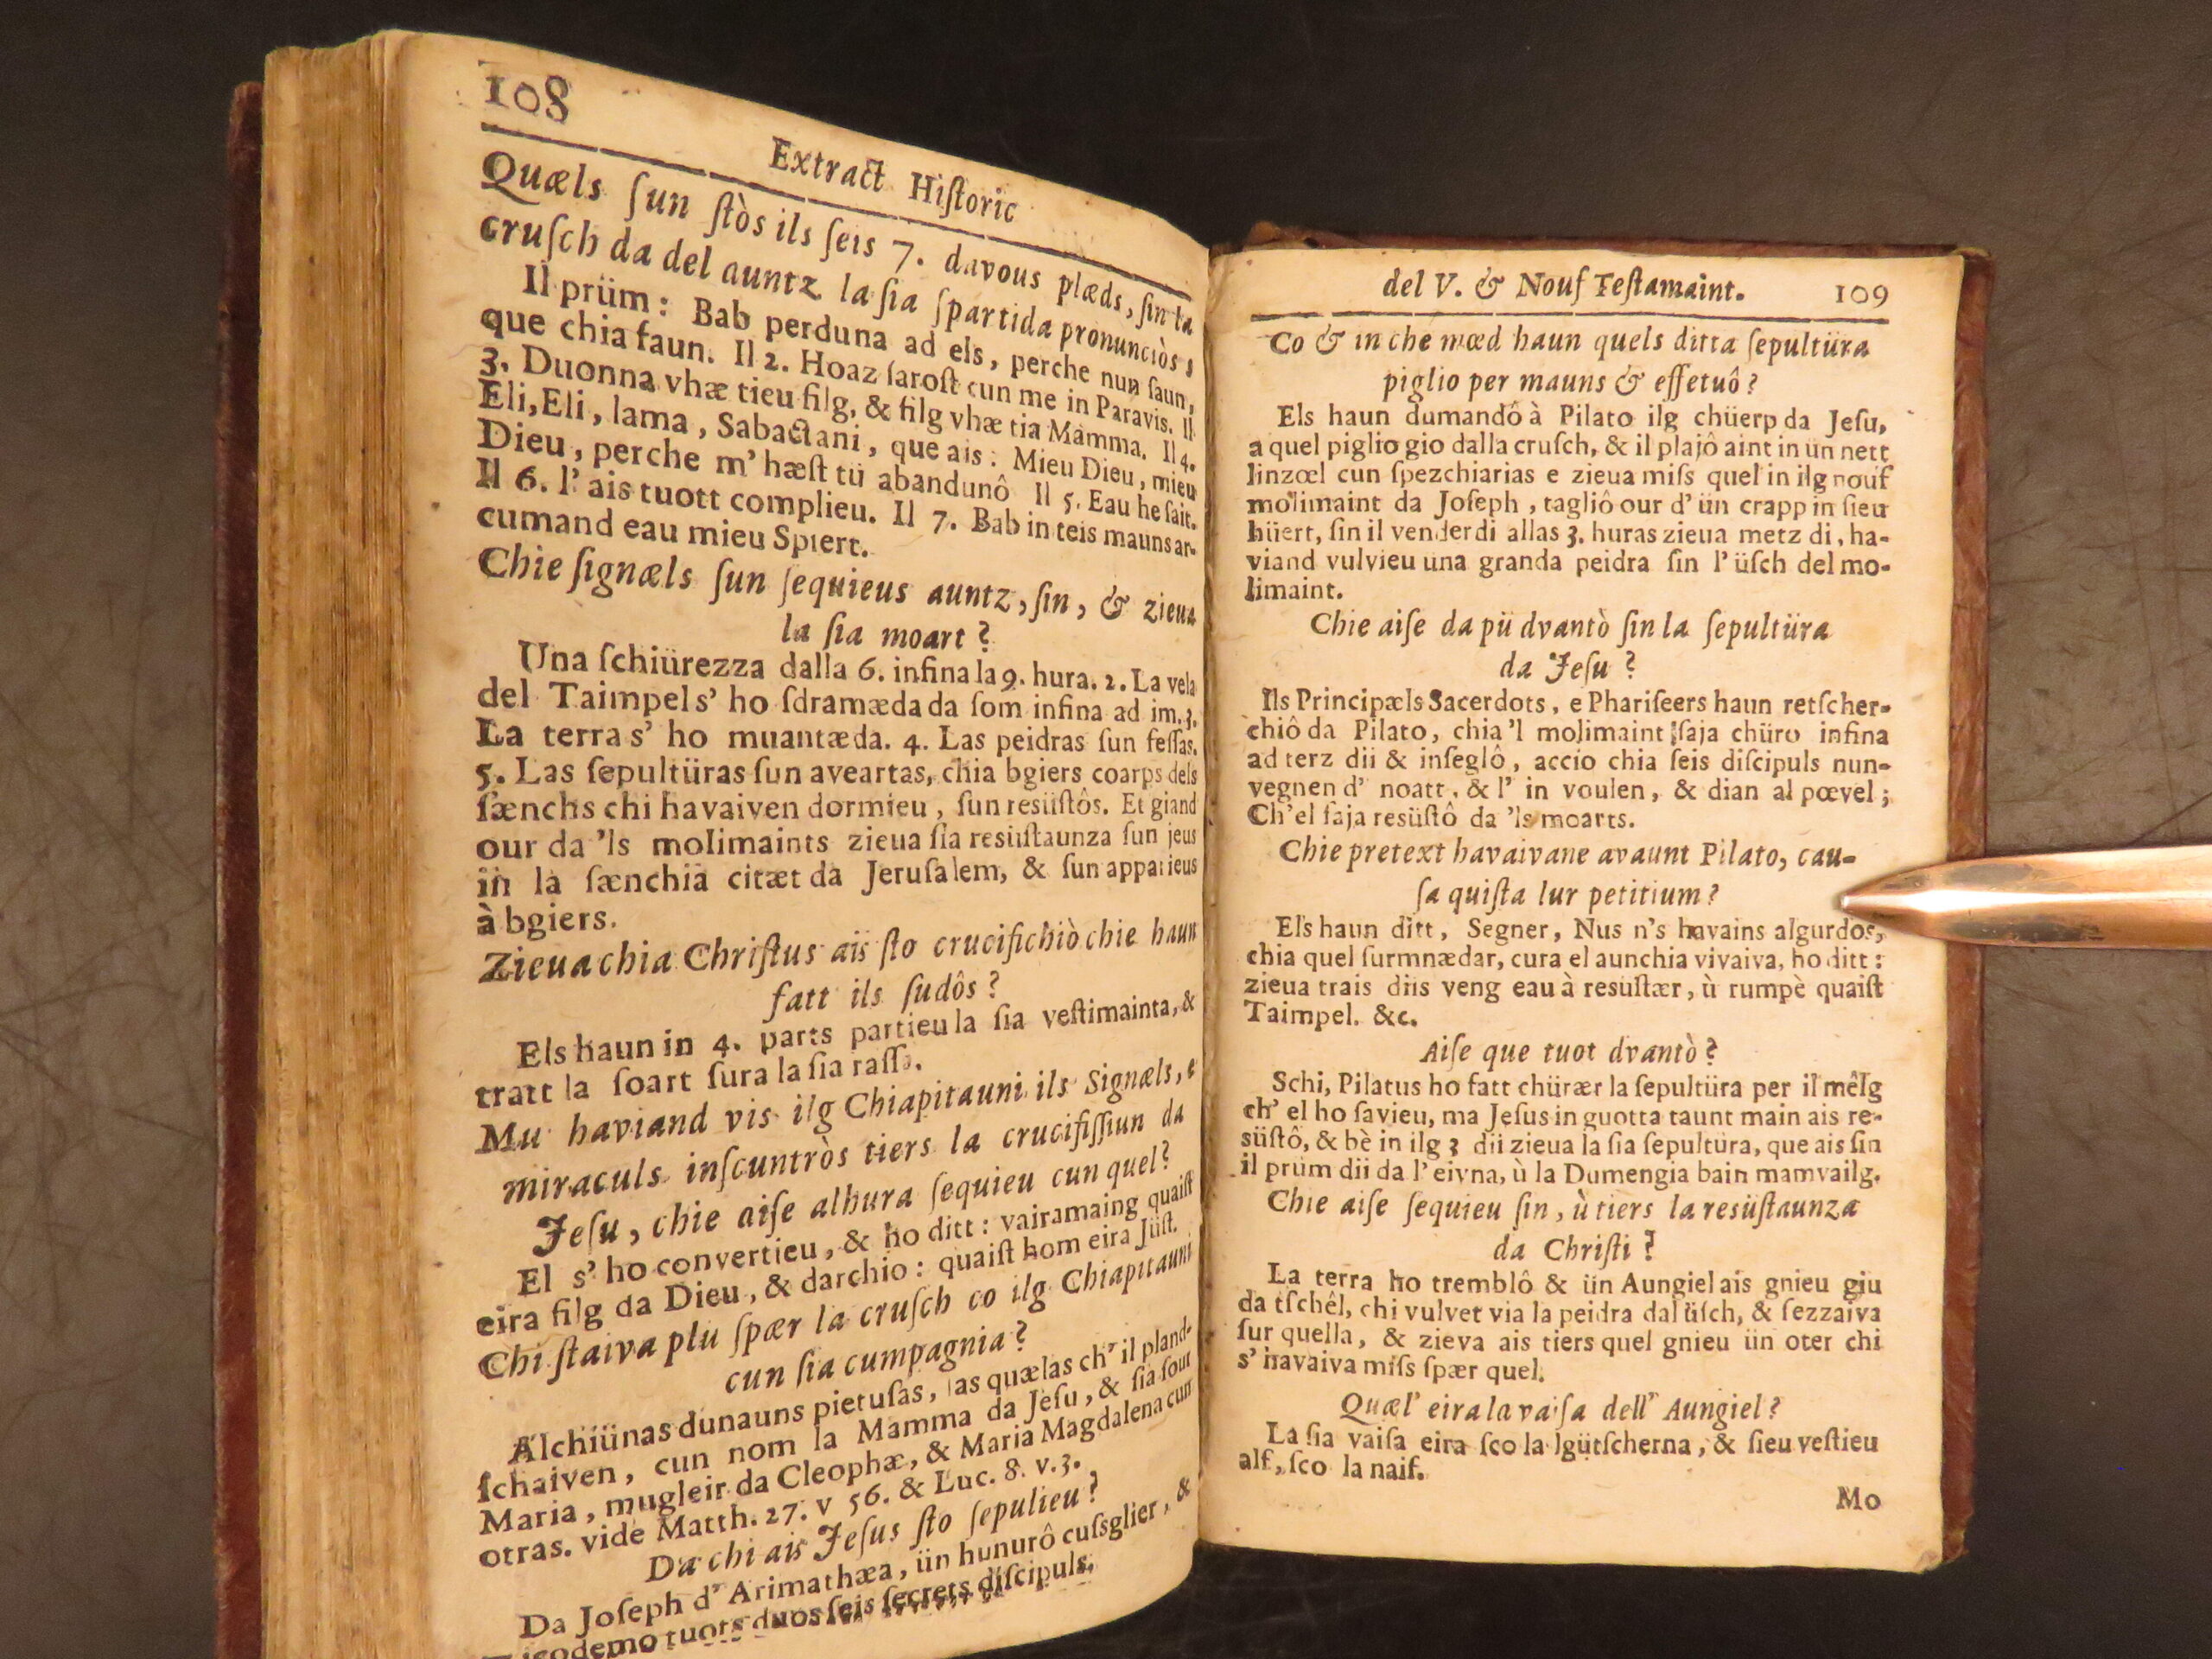 108
Extract Hiſtoric
Quæls ſun ſtòs ils ſeis 7. davous plæds, ſin la
cruſch da del auntz la ſia ſpartida pronunciòs
Il prüm: Bab perduna ad els, perche nun ſaun,
que chia faun. Il 2. Hoaz ſaroſt cun me in Paravis. Il
3. Duonna vhæ tieu filg, & filg vhæ tia Mamma. Il 4.
Eli, Eli, lama, Sabactani, que ais: Mieu Dieu, mieu
Dieu, perche m' hæſt tü abandunô Il 5. Eau he ſait.
Il 6. l' ais tuott complieu. Il 7. Bab in teis mauns ar-
cumand eau mieu Spiert.
Chie ſignæls ſun ſequieus auntz, ſin, & zieua
la ſia moart?
Una ſchiürezza dalla 6. infina la 9. hura. 2. La vela
del Taimpel s' ho ſdramæda da ſom infina ad im. 3.
La terra s' ho muantæda. 4. Las peidras ſun feſſas.
5. Las ſepultüras ſun aveartas, chia bgiers coarps dels
ſænchs chi havaiven dormieu, ſun resüſtôs. Et giand
our da 'ls molimaints zieua ſia resüſtaunza ſun jeus
in la ſænchia citæt da Jeruſalem, & ſun apparieus
à bgiers.
Zieua chia Chriſtus ais ſto crucifichiò chie haun
fatt ils ſudôs?
Els haun in 4. parts partieu la ſia veſtimainta, &
tratt la ſoart ſura la ſia raſſa.
Mu haviand vis ilg Chiapitauni ils Signæls, e
miraculs inſcuntròs tiers la crucifiſſiun da
Jeſu, chie aiſe alhura ſequieu cun quel?
El s' ho convertieu, & ho ditt: vairamaing quaiſt
eira filg da Dieu, & darchio: quaiſt hom eira Jüſt.
Chi ſtaiva plu ſpær la cruſch co ilg Chiapitauni
cun ſia cumpagnia?
Alchiünas dunauns pietuſas, las quælas ch' il pland-
ſchaiven, cun nom la Mamma da Jeſu, & ſia ſour
Maria, mugleir da Cleophæ, & Maria Magdalena cun
otras. vide Matth. 27. v 56. & Luc. 8. v. 3.
Da chi ais Jeſus ſto ſepulieu?
Da Joſeph d' Arimathæa, ün hunurô cuſsglier, &
tuots duos ſeis ſecrets diſcipuls.
del V. & Nouf Teſtamaint. 109
Co & in che mœd haun quels ditta ſepultüra
piglio per mauns & effetuô?
Els haun dumandô à Pilato ilg chüerp da Jeſu,
a quel piglio gio dalla cruſch, & il plajô aint in ün nett
linzœl cun ſpezchiarias e zieua miſs quel in ilg nouf
molimaint da Joſeph, tagliô our d' ün crapp in ſieu
hüert, ſin il venderdi allas 3. huras zieua metz di, ha-
viand vulvieu una granda peidra ſin l' üſch del mo-
limaint.
Chie aiſe da pü dvantò ſin la ſepultüra
da Jeſu?
Ils Principæls Sacerdots, e Phariſeers haun retſcher-
chiô da Pilato, chia 'l molimaint ſaja chüro infina
ad terz dii & inſeglô, accio chia ſeis diſcipuls nun-
vegnen d' noatt, & l' in voulen, & dian al pœvel;
Ch' el ſaja resüſtô da 'ls moarts.
Chie pretext havaivane avaunt Pilato, cau-
ſa quiſta lur petitium?
Els haun ditt, Segner, Nus n's havains algurdos,
chia quel ſurmnædar, cura el aunchia vivaiva, ho ditt:
zieua trais diis veng eau à resuſtær, ù rumpè quaiſt
Taimpel. &c.
Aiſe que tuot dvantò?
Schi, Pilatus ho fatt chürær la ſepultüra per il mêlg
ch' el ho ſavieu, ma Jeſus in guotta taunt main ais re-
süſtô, & bè in ilg 3 dii zieua la ſia ſepultüra, que ais ſin
il prüm dii da l' eivna, ù la Dumengia bain mamvailg.
Chie aiſe ſequieu ſin, ù tiers la resüſtaunza
da Chriſti?
La terra ho tremblô & ün Aungiel ais gnieu giu
da tſchêl, chi vulvet via la peidra dal üſch, & ſezzaiva
ſur quella, & zieva ais tiers quel gnieu ün oter chi
s' havaiva miſs ſpær quel.
Quæl' eira la vaiſa dell' Aungiel?
La ſia vaiſa eira ſco la lgütſcherna, & ſieu veſtieu
alf, ſco la naif.
Mo